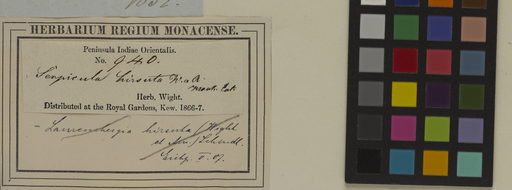 HERBARIUM REGIUM MONACENSE.
Peninsula Indiae Orientalis.
No. 940.
Serpicula hirsuta W. & A.
Herb. Wight.
Distributed at the Royal Gardens, Kew. 1866-7.
- Laurembergia hirsuta (Wight
et Arn.) Schindl.